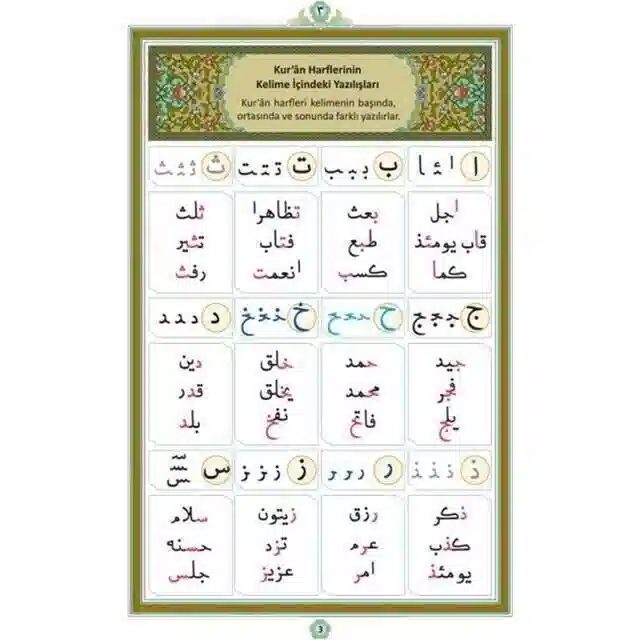 ٣
Kur'ân Harflerinin
Kelime İçindeki Yazılışları
Kur'ân harfleri kelimenin başında,
ortasında ve sonunda farklı yazılırlar.
ا ا ئا ا
ب ببب
ت تتت
ث ثثث
اجل
قاب يومئذ
كما
بعث
طبع
كسب
تظاهرا
فتاب
انعمت
ثلث
تثير
رفث
ج ججج
ح ححح
خ خخخ
د د د د
جيد
فجر
يلج
حمد
محمد
فاتح
خلق
يخلق
نفخ
دين
قدر
بلد
ذ ذ ذ ذ
ر ر ر ر
ز ز ز ز
س سسس
ذكر
كذب
يومئذ
رزق
عرم
امر
زيتون
تزد
عزيز
سلام
حسنه
جلس
3